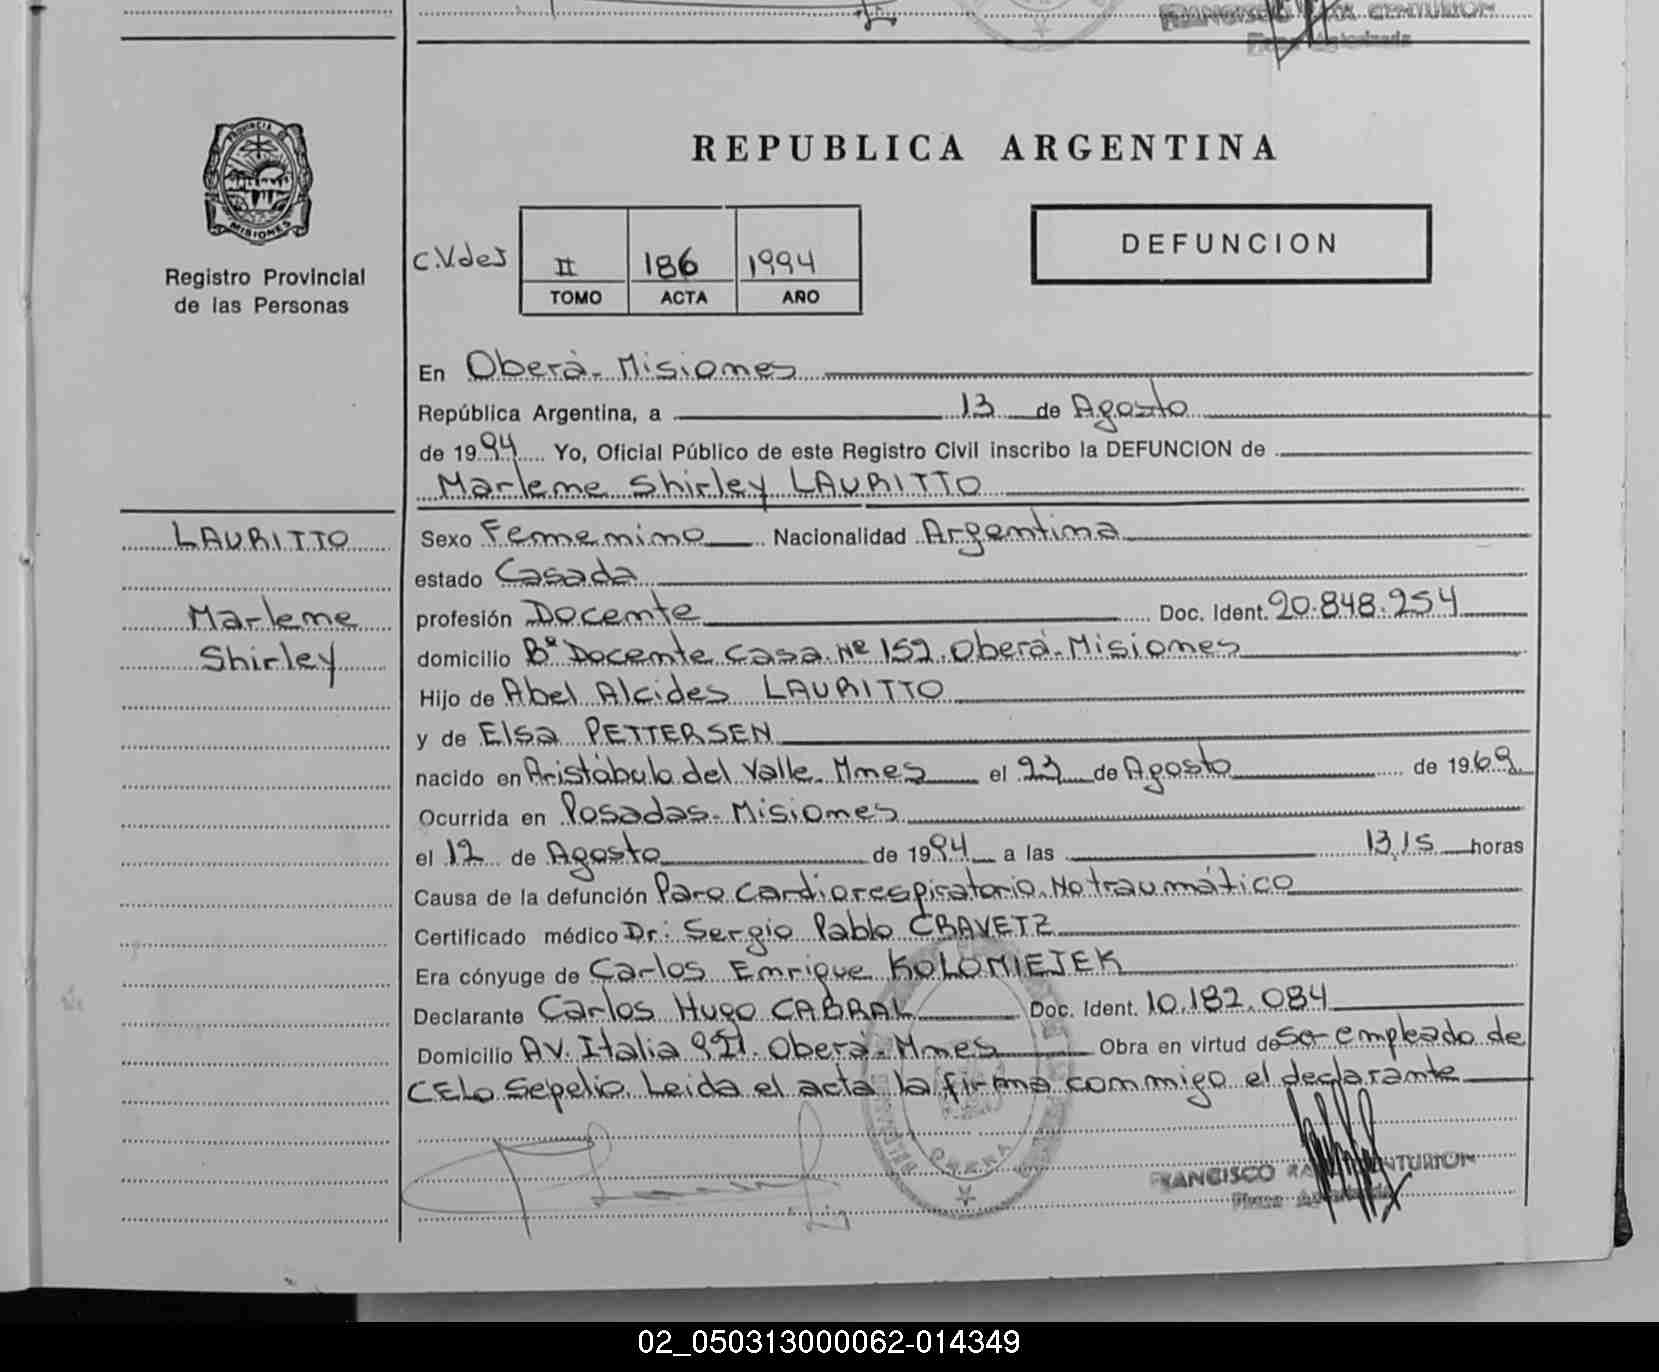 FRANCISCO CENTURION
Firma Autorizada
PROVINCIA DE
MISIONES
Registro Provincial
de las Personas
REPUBLICA ARGENTINA
C.V.deJ II 186 1994
TOMO ACTA AÑO
DEFUNCION
En Oberá - Misiones
República Argentina, a 13 de Agosto
de 1994 Yo, Oficial Público de este Registro Civil inscribo la DEFUNCION de
Marlene Shirley LAURITTO
LAURITTO
Marlene
Shirley
Sexo Femenino Nacionalidad Argentina
estado Casada
profesión Docente Doc. Ident. 20.848.254
domicilio Bº Docente Casa Nº 152. Oberá - Misiones
Hijo de Abel Alcides LAURITTO
y de Elsa PETTERSEN
nacido en Aristóbulo del Valle - Mnes el 23 de Agosto de 1969
Ocurrida en Posadas - Misiones
el 12 de Agosto de 1994 a las 13,15 horas
Causa de la defunción Paro cardiorespiratorio. No traumático
Certificado médico Dr: Sergio Pablo CRAVETZ
Era cónyuge de Carlos Enrique KOLOMIEJEK
Declarante Carlos Hugo CABRAL Doc. Ident. 10.182.084
Domicilio AV. Italia Oberá - Mnes Obra en virtud de so- empleado de
CELO Sepelio. Leida el acta la firma conmigo el declarante
OBERA
FRANCISCO CENTURION
Firma Autorizada
02_050313000062-014349